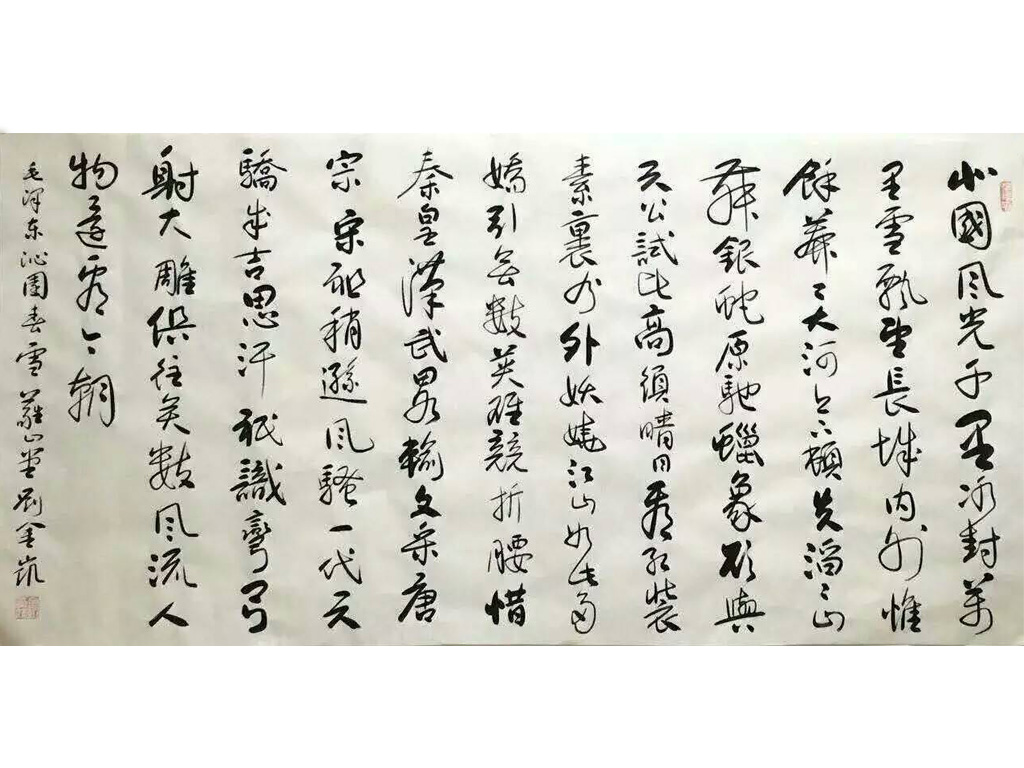 北國風光千里冰封萬
里雪飄望長城內外惟
餘莽〻大河上下頓失滔〻山
舞銀蛇原馳蠟象欲與
天公試比高須晴日看紅裝
素裹分外妖嬈江山如此多
嬌引無數英雄競折腰惜
秦皇漢武略輸文采唐
宗宋祖稍遜風騷一代天
驕成吉思汗祇識彎弓
射大雕俱往矣數風流人
物還看今朝
毛澤東沁園春雪 山堂劉金凱